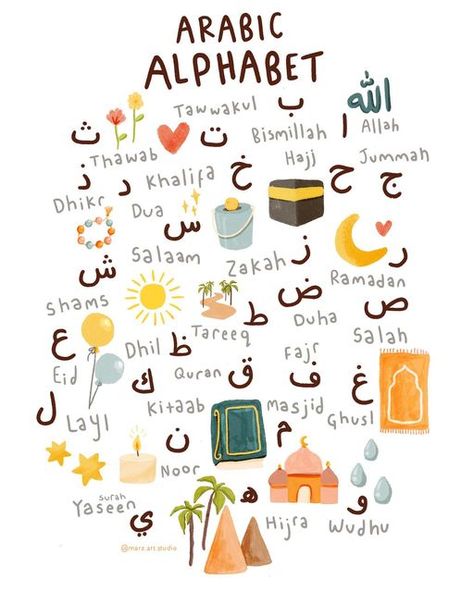 ARABIC
ALPHABET
الله
ا
Allah
ب
Bismillah
ت
Tawwakul
ث
Thawab
ج
Jummah
ح
Hajj
خ
Khalifa
د
Dua
ذ
Dhikr
ر
Ramadan
ز
Zakah
س
Salaam
ش
Shams
ص
Salah
ض
Duha
ط
Tareeq
ظ
Dhil
ع
Eid
غ
Ghusl
ف
Fajr
ق
Quran
ك
Kitaab
ل
Layl
م
Masjid
ن
Noor
ه
Hijra
و
Wudhu
ي
Surah
Yaseen
@merz.art.studio